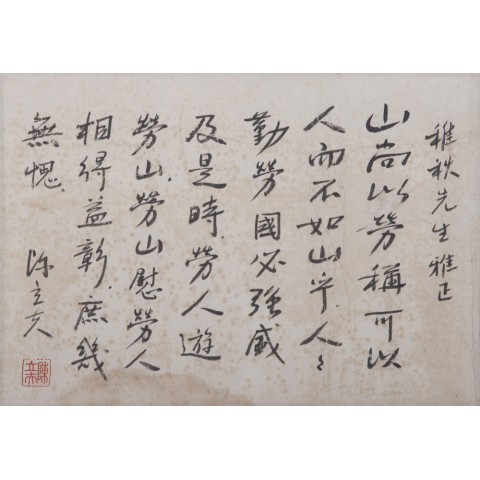 稚秩先生雅正
山尚以勞稱可以
人而不如山乎人々
勤勞國必強盛
及是時勞人遊
勞山勞山慰勞人
相得益彰庶幾
無愧
陳立夫
陳立夫